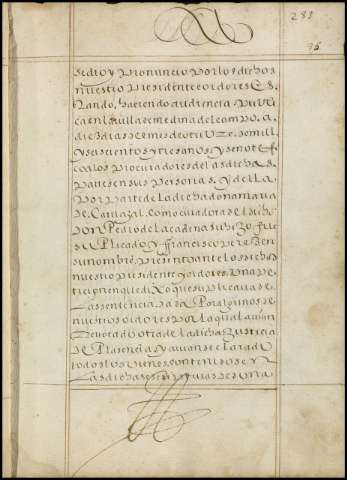 283
36
se dio y Pronuncio Por los dichos
nuestro Presidente e oidores es
tando, haciendo audiencia Publi
ca en la villa de medina del campo, a
diez dias del mes de otubre de mill
y seiscientos y tres anos y se notifi
co a los Procuradores de las dichas
Partes en sus Personas, y de lla
Por Parte de la dicha dona maria
de Carvajal, como curadora del dicho
Don Pedro de la cadena su hijo, fue
su Plicado, y francisco perez en
su nombre, Presento ante los dichos
nuestro Presidente y oidores, una Pe
ticion en que dixo que suplicava de
la sentencia dada Por algunos de
nuestros oidores Por la qual avian
Revocado otra de la dicha Justicia
de Plasencia, y avian declarado
todos los vienes contenidos en
las dichas escrituras de dona